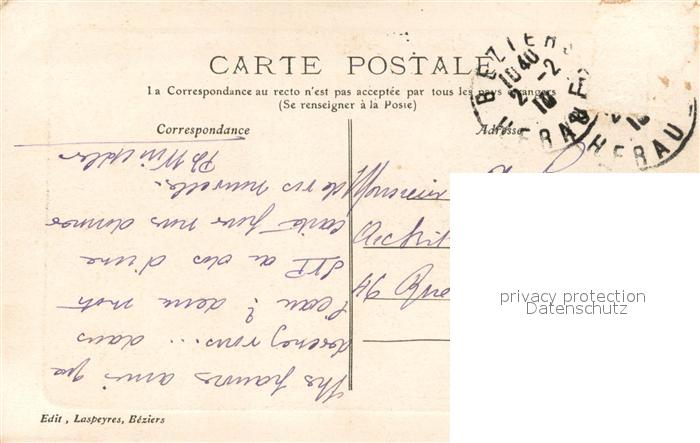 CARTE POSTALE
La Correspondance au recto n'est pas acceptée par tous les pays étrangers
(Se renseigner à la Poste)
Correspondance
Adresse
BEZIERS
10 40
2 - 2
10
HERAULT
HERAU
Mes pauvres amis que
devenez vous... dans
l'eau ? demi mot
SVP au dos d'une
carte pour nous donner
de vos nouvelles.
Ph Winckler
Monsieur
46 Rue
Edit, Laspeyres, Béziers
privacy protection
Datenschutz